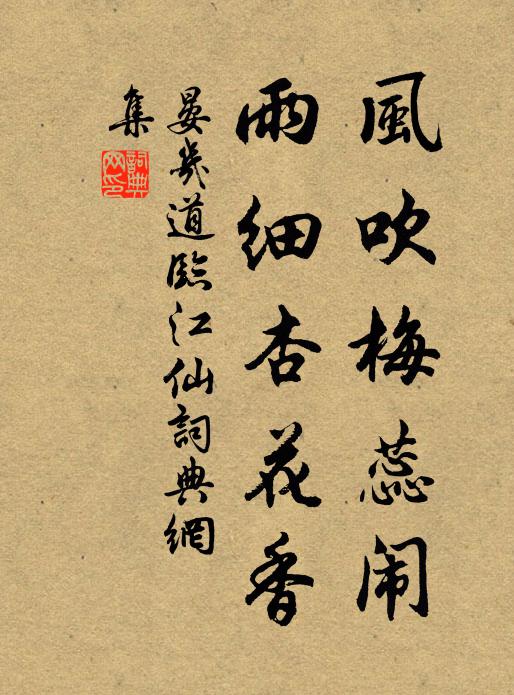 風吹梅蕊闹
雨細杏花香
晏幾道臨江仙詞典網
集
詞典
网印